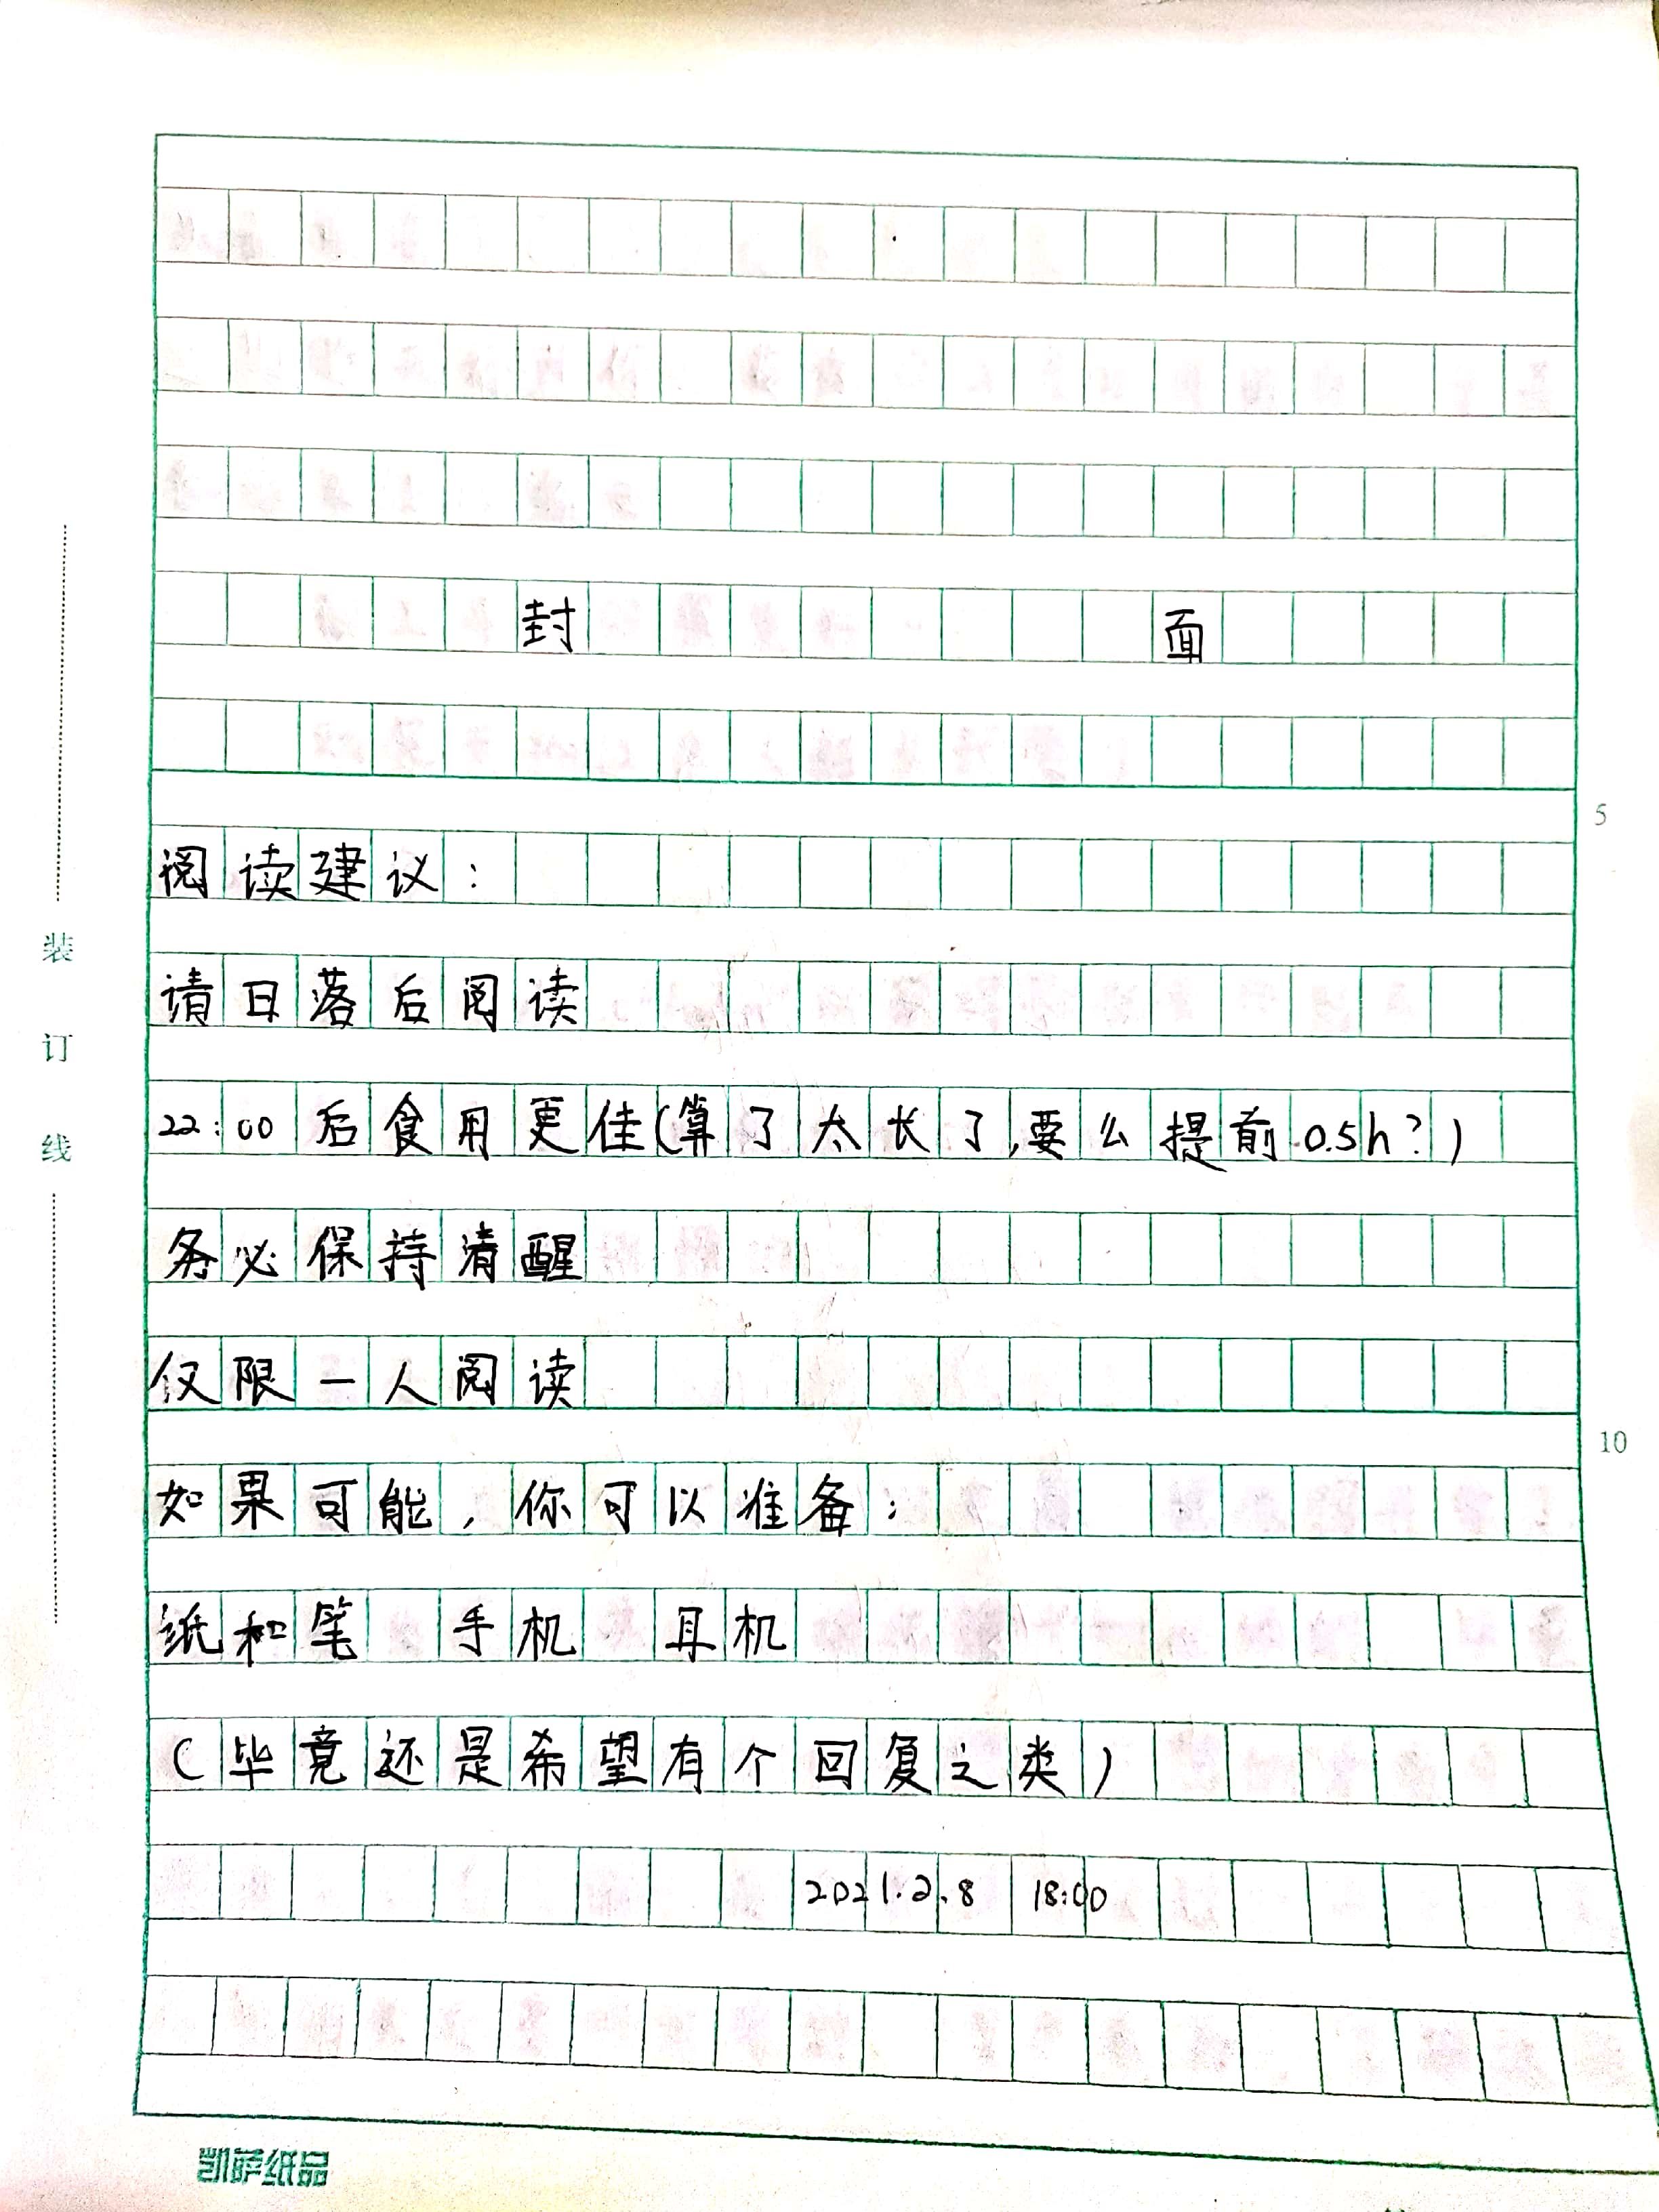 封 面
5
阅读建议：
请日落后阅读
22:00后食用更佳(算了太长了,要么提前0.5h?)
务必保持清醒
仅限一人阅读
10
如果可能，你可以准备：
纸和笔 手机 耳机
(毕竟还是希望有个回复之类)
2021.2.8 18:00
装订线
凯萨纸品